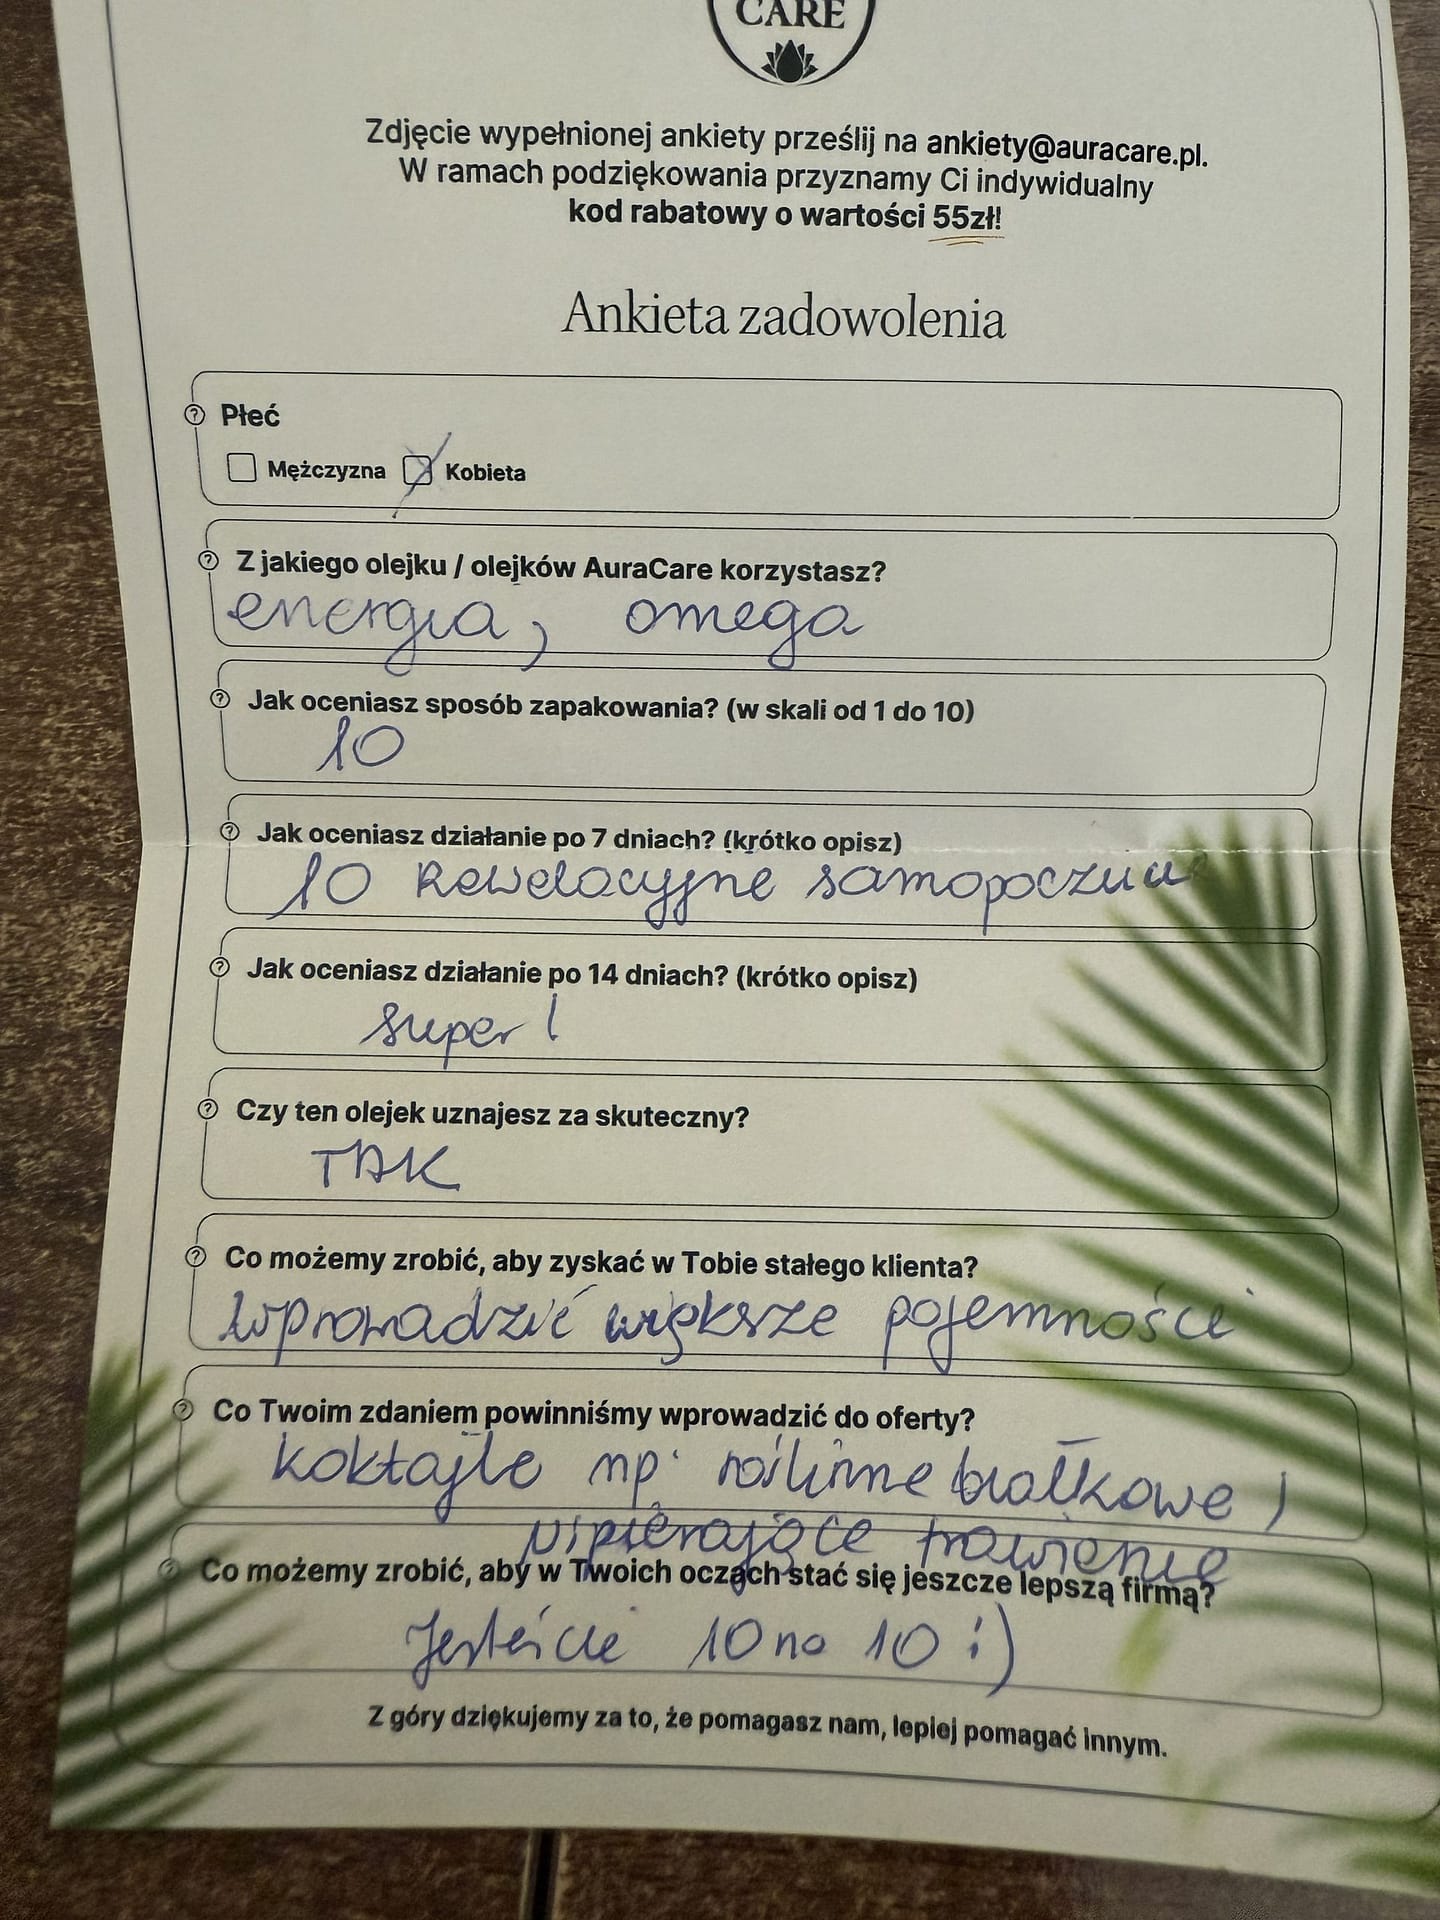 CARE
Zdjęcie wypełnionej ankiety prześlij na ankiety@auracare.pl.
W ramach podziękowania przyznamy Ci indywidualny
kod rabatowy o wartości 55zł!
Ankieta zadowolenia
Płeć
Mężczyzna Kobieta
Z jakiego olejku / olejków AuraCare korzystasz?
energia, omega
Jak oceniasz sposób zapakowania? (w skali od 1 do 10)
10
Jak oceniasz działanie po 7 dniach? (krótko opisz)
10 Rewelacyjne samopoczucie
Jak oceniasz działanie po 14 dniach? (krótko opisz)
super!
Czy ten olejek uznajesz za skuteczny?
TAK
Co możemy zrobić, aby zyskać w Tobie stałego klienta?
wprowadzić większe pojemności
Co Twoim zdaniem powinniśmy wprowadzić do oferty?
koktajle np. roślinne białkowe,
wspierające trawienie
Co możemy zrobić, aby w Twoich oczach stać się jeszcze lepszą firmą?
Jesteście 10 na 10 :)
Z góry dziękujemy za to, że pomagasz nam, lepiej pomagać innym.